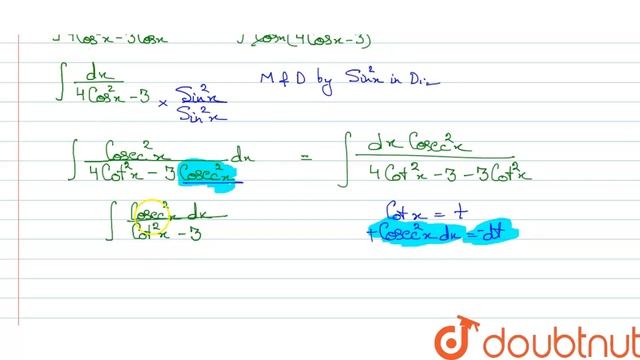 ∫ 4Cos³x-3Cosx ∫ Cosx(4Cos²x-3)
∫ dx / 4Cos²x - 3 × Sin²x / Sin²x M & D by Sin²x in Div
∫ Cosec²x / 4Cot²x - 3 Cosec²x dx = ∫ dx Cosec²x / 4Cot²x - 3 - 3Cot²x
∫ Cosec²x dx / Cot²x - 3 Cot x = t
+Cosec²x dx = -dt
doubtnut